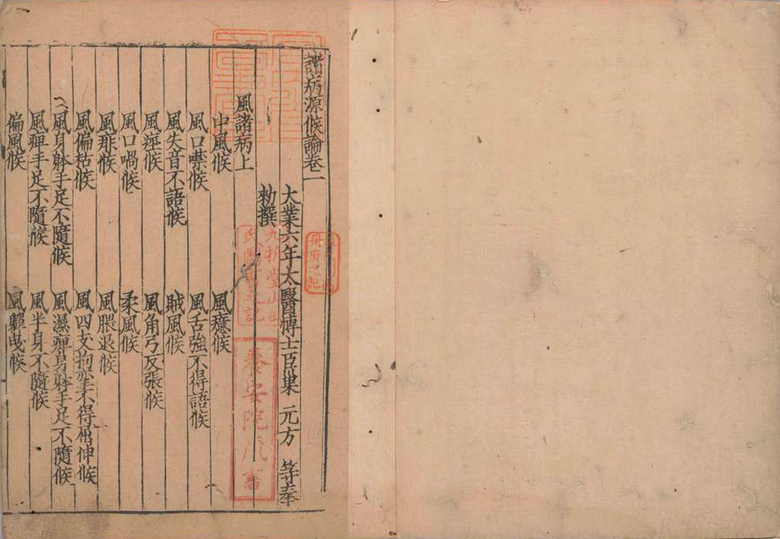 諸病源候論卷一
大業六年太醫博士臣巢 元方 等奉
勑撰
風諸病上
中風候 風癔候
風口噤候 風舌強不得語候
風失音不語候 賊風候
風痙候 風角弓反張候
風口喎候 柔風候
風痱候 風腲退候
風偏枯候 風四支拘攣不得屈伸候
風身躰手足不隨候 風濕痹身躰手足不隨候
風痹手足不隨候 風半身不隨候
偏風候 風軃曳候
養安院藏書